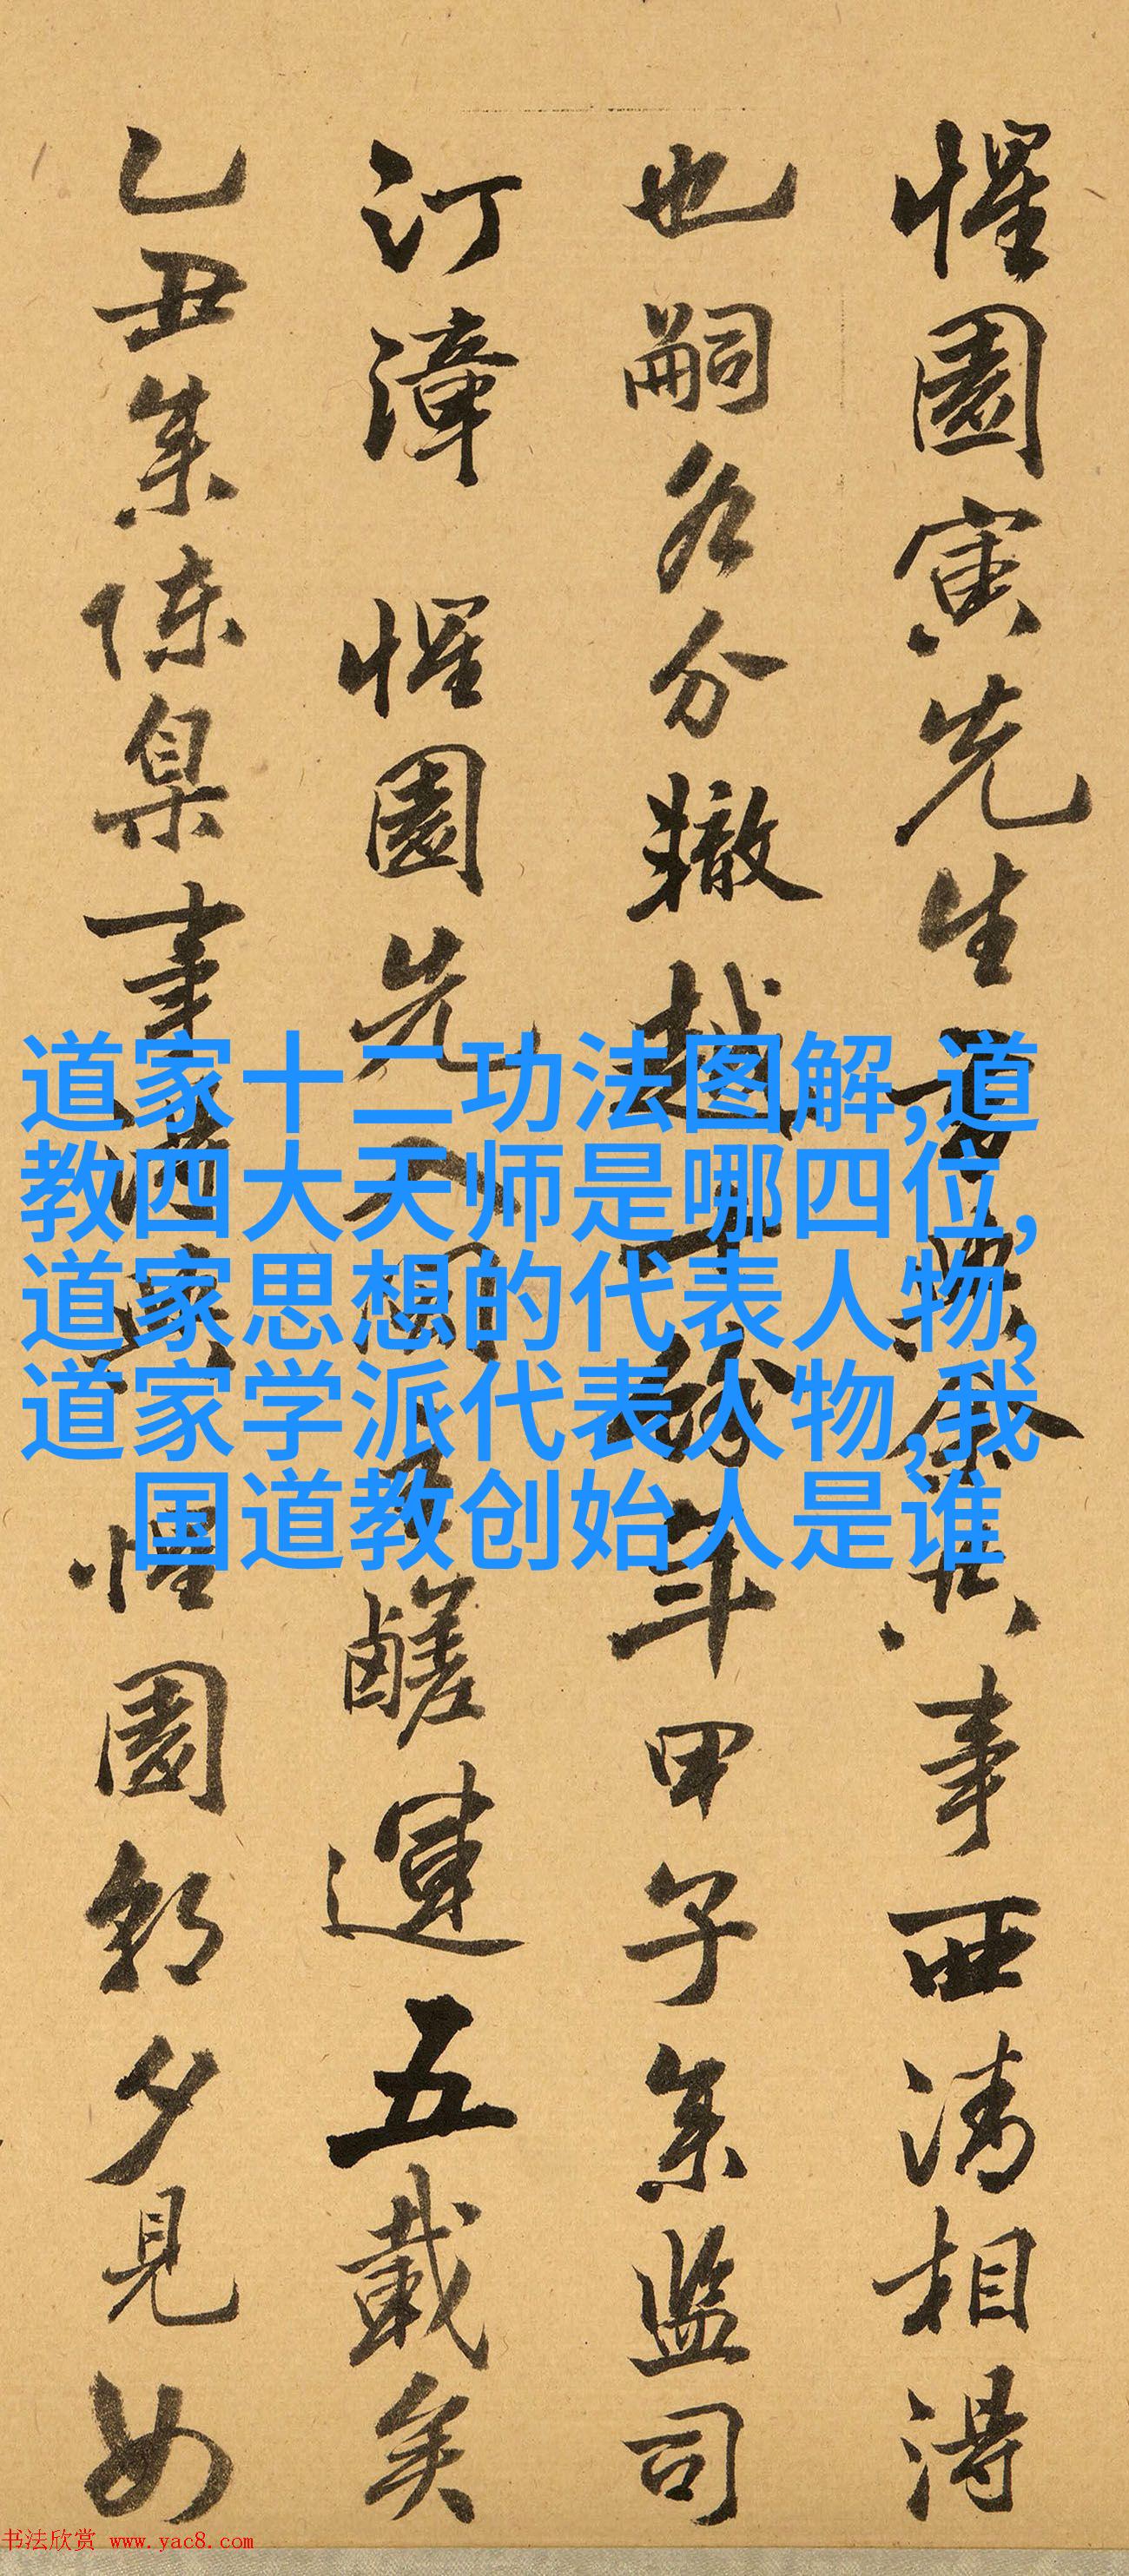 惺園寅先生
事西清相得
也嗣各分轍越
年甲子余监司
汀漳 惺園先
鹺運五載矣
乙丑集陈臬事
惺園朝夕見如
道家十二功法图解,道
教四大天师是哪四位,
道家思想的代表人物,
道家学派代表人物,我
国道教创始人是谁
书法欣赏 www.yac8.com